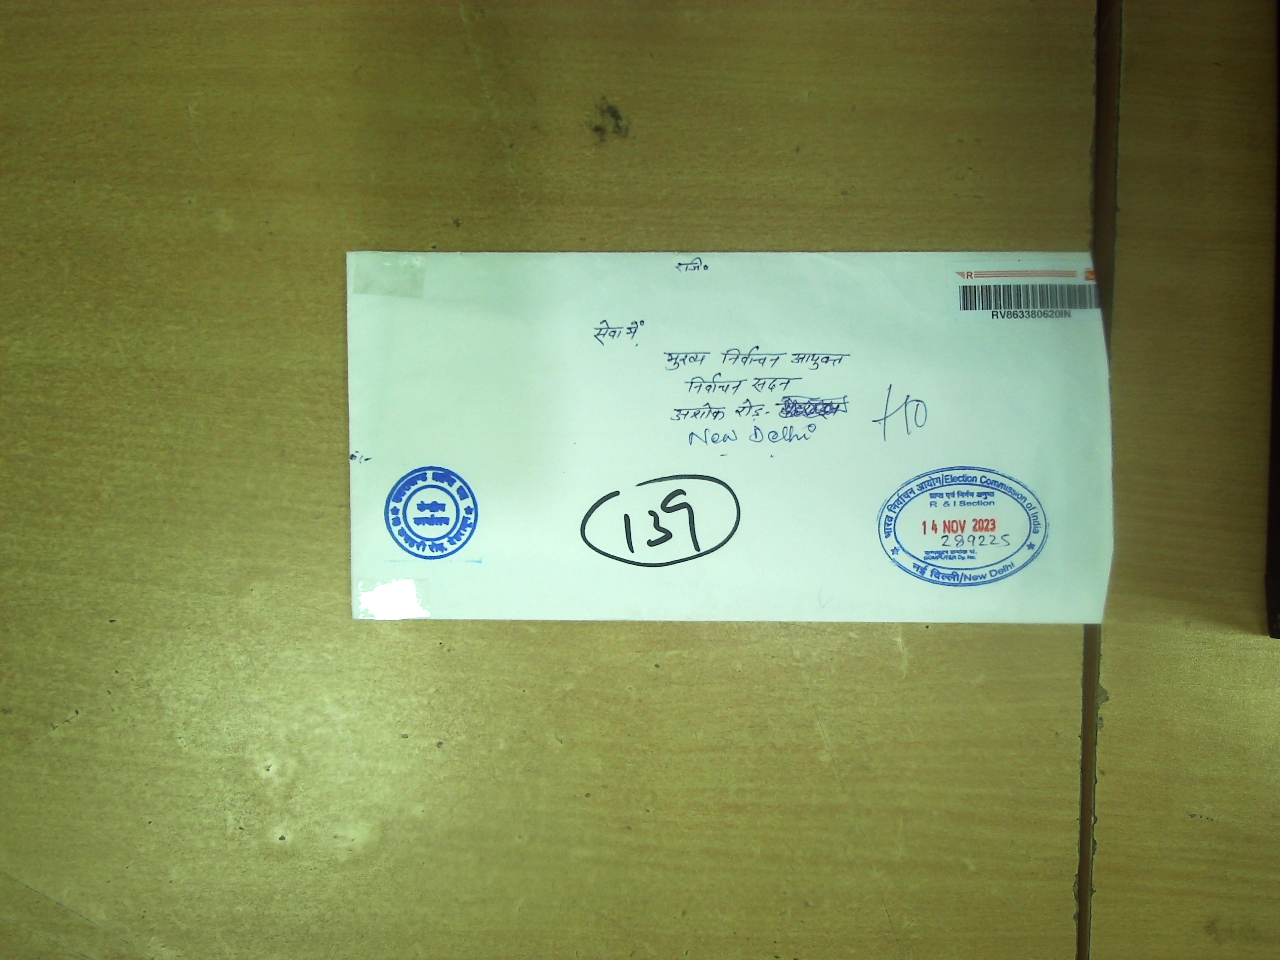 रजि०
R
RV863380620IN
सेवा में,
मुख्य निर्वाचन आयुक्त
निर्वाचन सदन
अशोक रोड-
New Delhi
139
भारत निर्वाचन आयोग/Election Commission of India
प्राप्त एवं निर्गम अनुभाग
R & I Section
14 NOV 2023
289225
COMPUTER Dy. No.
नई दिल्ली/New Delhi
केन्द्रीय
कार्यालय